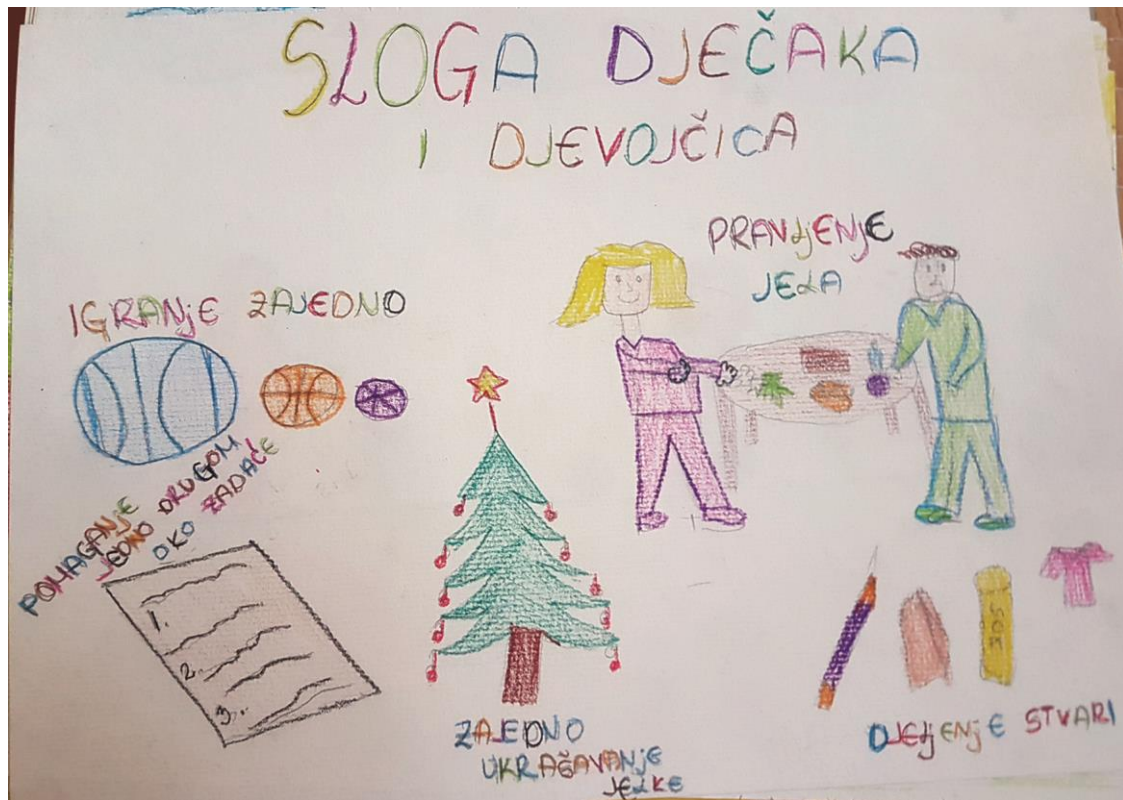 SLOGA DJEČAKA
I DJEVOJČICA
PRAVLJENJE
JELA
IGRANJE ZAJEDNO
POMAGANJE
JEDNO DRUGOM
OKO ZADAĆE
1.
2.
3.
ZAJEDNO
UKRAŠAVANJE
JELKE
SOK
DJELJENJE STVARI